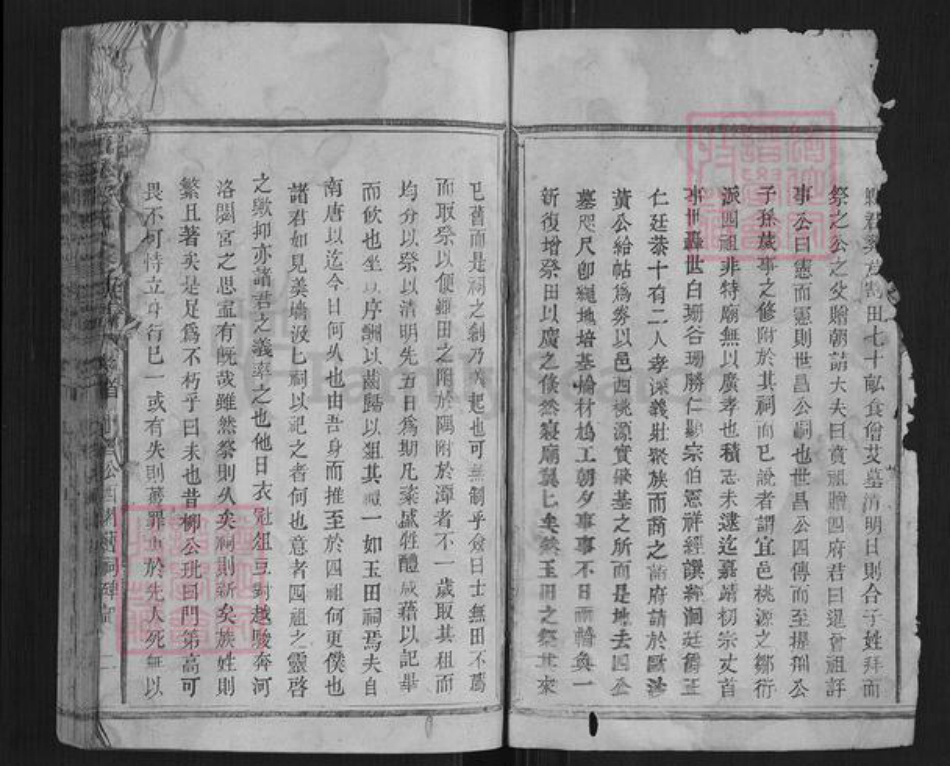 田七十畝食僧艾墓清明日則合子姓拜而
祭之公之父贈朝請大夫曰賁祖贈四府君曰暹曾祖評
事公曰憲而憲則世昌公嗣也世昌公四傳而至提刑公
子孫歲事之修附於其祠而已說者謂宜邑桃源之鄒衍
派四祖非特廟無以廣孝也積志未逮迄嘉靖初宗丈首
事世轟世白珊谷珊勝仁顯宗伯憲祥經譔經洄廷爵王
仁廷蓁十有二人孝深義壯聚族而商之請府請於歐
黃公給帖為券以邑西桃源實肇基之所而是地去四公
墓咫尺卽繩地培基掄材鳩工朝夕事事不日而輪奐一
新復增祭田以廣之儼然寢廟翼七矣然玉田之祭其來
已舊而是祠之創乃義起也可無制乎僉曰士無田不薦
而取祭以便維田之附於隅附於潭者不一歲取其租而
均分以祭以清明先五日為期凡粢盛牲醴咸藉以記畢
而飲也坐以序酬以齒歸以俎其一如玉田祠焉夫自
南唐以迄今日何久也由吾身而推至於四祖何更僕也
諸君如見羹墻汲七祠以祀之者何也意者四祖之靈啓
之歟抑亦諸君之義率之也他日衣冠俎豆對越駿奔河
洛閟宮之思盍有旣哉雖然祭則久矣祠則新矣族姓則
繁且著矣是足爲不朽乎曰未也昔柳公玭曰門第高可
畏不可恃立身行已一或有失則於先人死無以